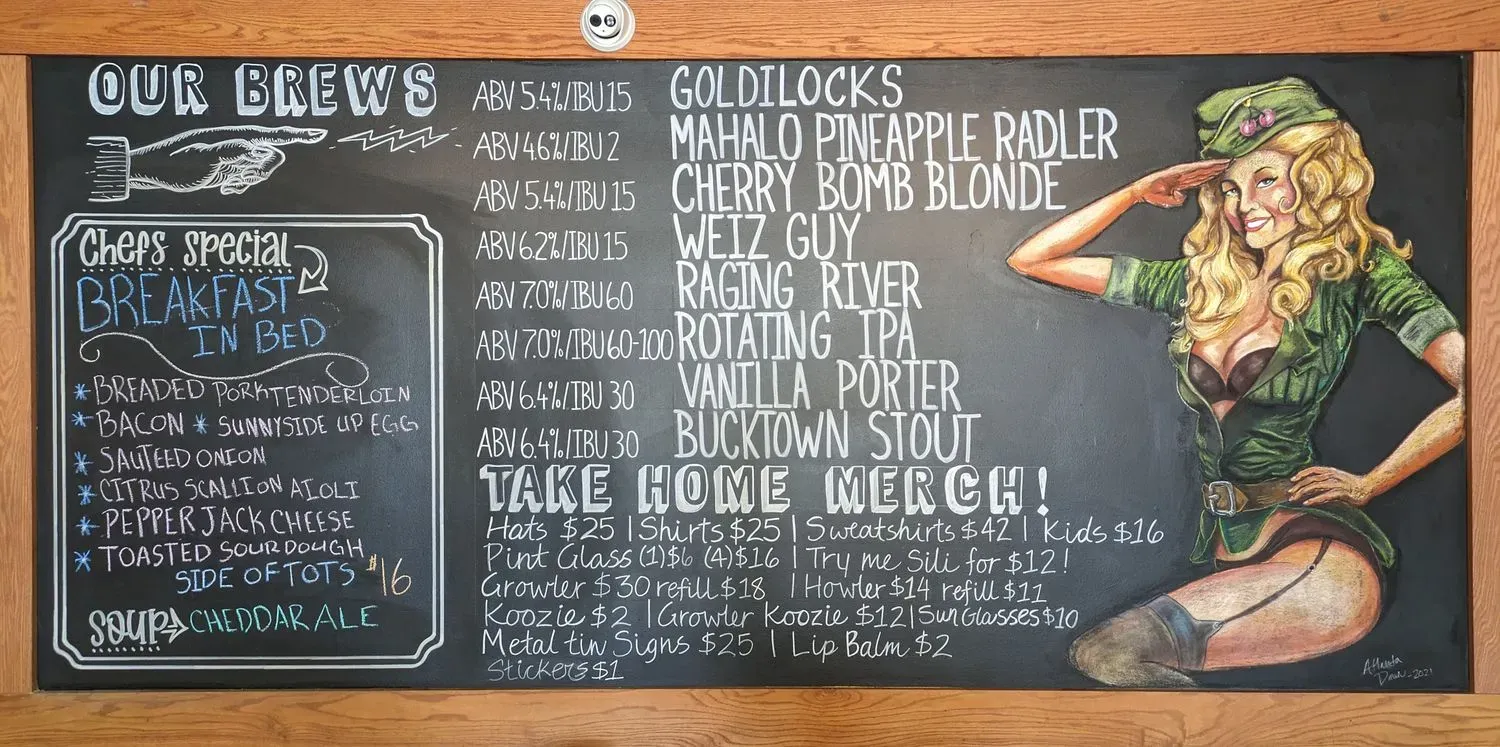 OUR BREWS
Chefs Special
BREAKFAST
IN BED
* BREADED PORK TENDERLOIN
* BACON * SUNNYSIDE UP EGG
* SAUTEED ONION
* CITRUS SCALLION AIOLI
* PEPPER JACK CHEESE
* TOASTED SOURDOUGH
SIDE OF TOTS $16
SOUP CHEDDAR ALE
ABV 5.4%/IBU 15 GOLDILOCKS
ABV 4.6%/IBU 2 MAHALO PINEAPPLE RADLER
ABV 5.4%/IBU 15 CHERRY BOMB BLONDE
ABV 6.2%/IBU 15 WEIZ GUY
ABV 7.0%/IBU 60 RAGING RIVER
ABV 7.0%/IBU 60-100 ROTATING IPA
ABV 6.4%/IBU 30 VANILLA PORTER
ABV 6.4%/IBU 30 BUCKTOWN STOUT
TAKE HOME MERCH!
Hats $25 | Shirts $25 | Sweatshirts $42 | Kids $16
Pint Glass (1)$6 (4)$16 | Try me Sili for $12!
Growler $30 refill $18 | Howler $14 refill $11
Koozie $2 | Growler Koozie $12 | SunGlasses $10
Metal tin Signs $25 | Lip Balm $2
Stickers $1
2021